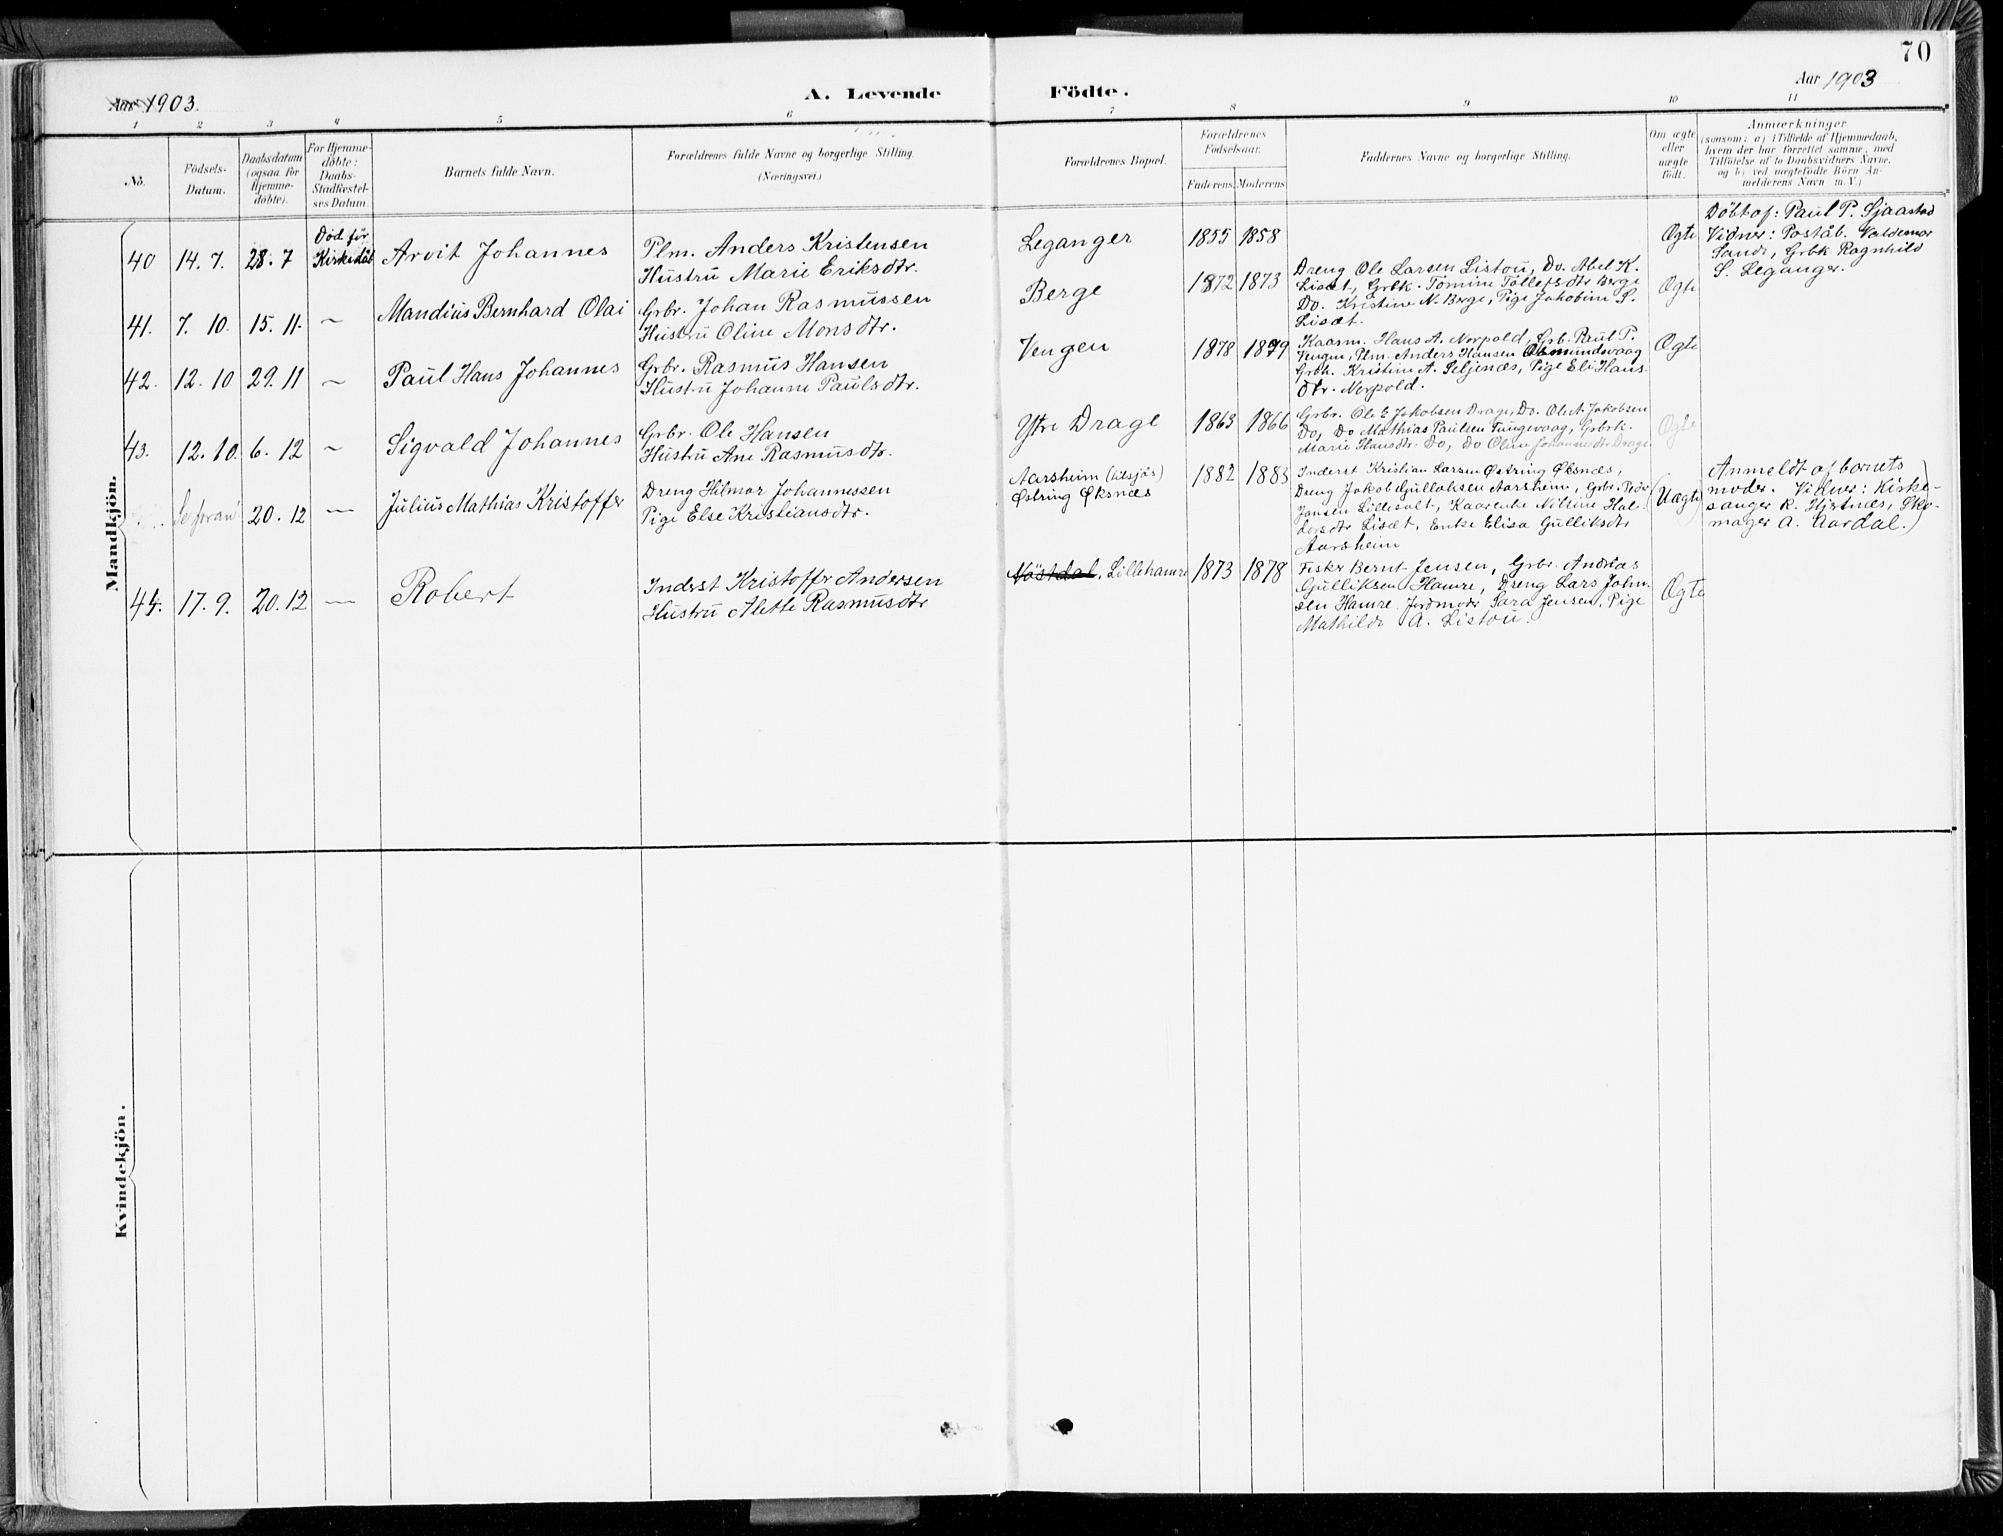 70
Aar 1903.
A. Levende Födte.
Aar 1903
1 2 3 4 5 6 7 8 9 10 11
No.
Födsels-
Datum.
Daabsdatum
(ogsaa for
Hjemme-
døbte).
For Hjemme-
døbte:
Daabs-
Stadfæstel-
ses Datum.
Barnets fulde Navn.
Forældrenes fulde Navne og borgerlige Stilling.
(Næringsvei.)
Forældrenes Bopæl.
Forældrenes
Födselsaar.
Faderens Moderens
Faddernes Navne og borgerlige Stilling.
Om ægte
eller
uægte
født.
Anmærkninger
(saasom: a) i Tilfælde af Hjemmedaab,
hvem der har forrettet samme, med
Tilföielse af to Daabsvidners Navne,
og b) ved uægtefødte Börn An-
melderens Navn m. V.)
Mandkjön.
40 14. 7. 28. 7
Död för
Kirkedåb
Arvit Johannes
Plm. Anders Kristensen
Hustru Marie Eriksdtr.
Leganger
1855 1858
Ægte
Döbt af: Paul P. Sjaastad
Vidner: Poståb. Valdemar
Sande, Grbk Ragnhild
S. Leganger.
41. 7. 10. 15. 11. ~
Mandius Bernhard Olai
Grbr. Johan Rasmussen
Hustru Oline Monsdtr.
Berge
1872 1873
Dreng Ole Larsen Listou, Do. Abel K.
Lisæt, Grbk. Tomine Tollefsdtr Berge
Do. Kristine N. Berge, Pige Jakobine S.
Lisæt.
Ægte
42. 12. 10 29. 11 ~
Paul Hans Johannes
Grbr. Rasmus Hansen
Hustru Johanne Paulsdtr.
Vengen
1878 1879
Kaarm. Hans A. Norpold, Grb. Paul P.
Vengen, Plm. Anders Hansen Osmundsvaag
Grbk. Kristine A. Seljenæs, Pige Eli Hans
dtr. Norpold.
Ægte
43. 12. 10. 6. 12 ~
Sigvald Johannes
Grbr. Ole Hansen
Hustru Ane Rasmusdtr.
Ytre Drage
1863 1866
Grbr. Ole E Jakobsen Drage, Do. Ole A. Jakobsen
Do, Do Mathias Paulsen Tungevaag, Grbrk.
Marie Hansdtr. Do, Do Oline Johannesdtr Drage
Ægte
Se foran 20. 12 —
Julius Mathias Kristoffer
Dreng Hilmar Johannessen
Pige Else Kristiansdtr.
Aarsheim (tilsjøs)
Østring Øksnæs
1882 1883
Inderst Kristian Larsen Østring Øksnæs,
Dreng Jakob Gulliksen Aarsheim, Grbr. Peder
Jansen Lillesalt, Kaarenke Nilline Hal-
dorsdtr Lisæt, Enke Elisa Gulliksdtr
Aarsheim
(Uægte)
Anmeldt af barnets
moder. Vidner: Kirke-
sanger R. Hjertnæs, Sko-
mager A. Aardal.)
44. 17. 9. 20. 12 —
Robert
Inderst Kristoffer Andersen
Hustru Alette Rasmusdtr
Nöstdal, Lillehamre
1873 1878
Fisker Bernt Jensen, Grbr. Andreas
Gulliksen Hamre, Dreng Lars Johan-
sen Hamre. Jordmoder Sara Jensen, Pige
Mathilde A. Listou.
Ægte
Kvindekjön.